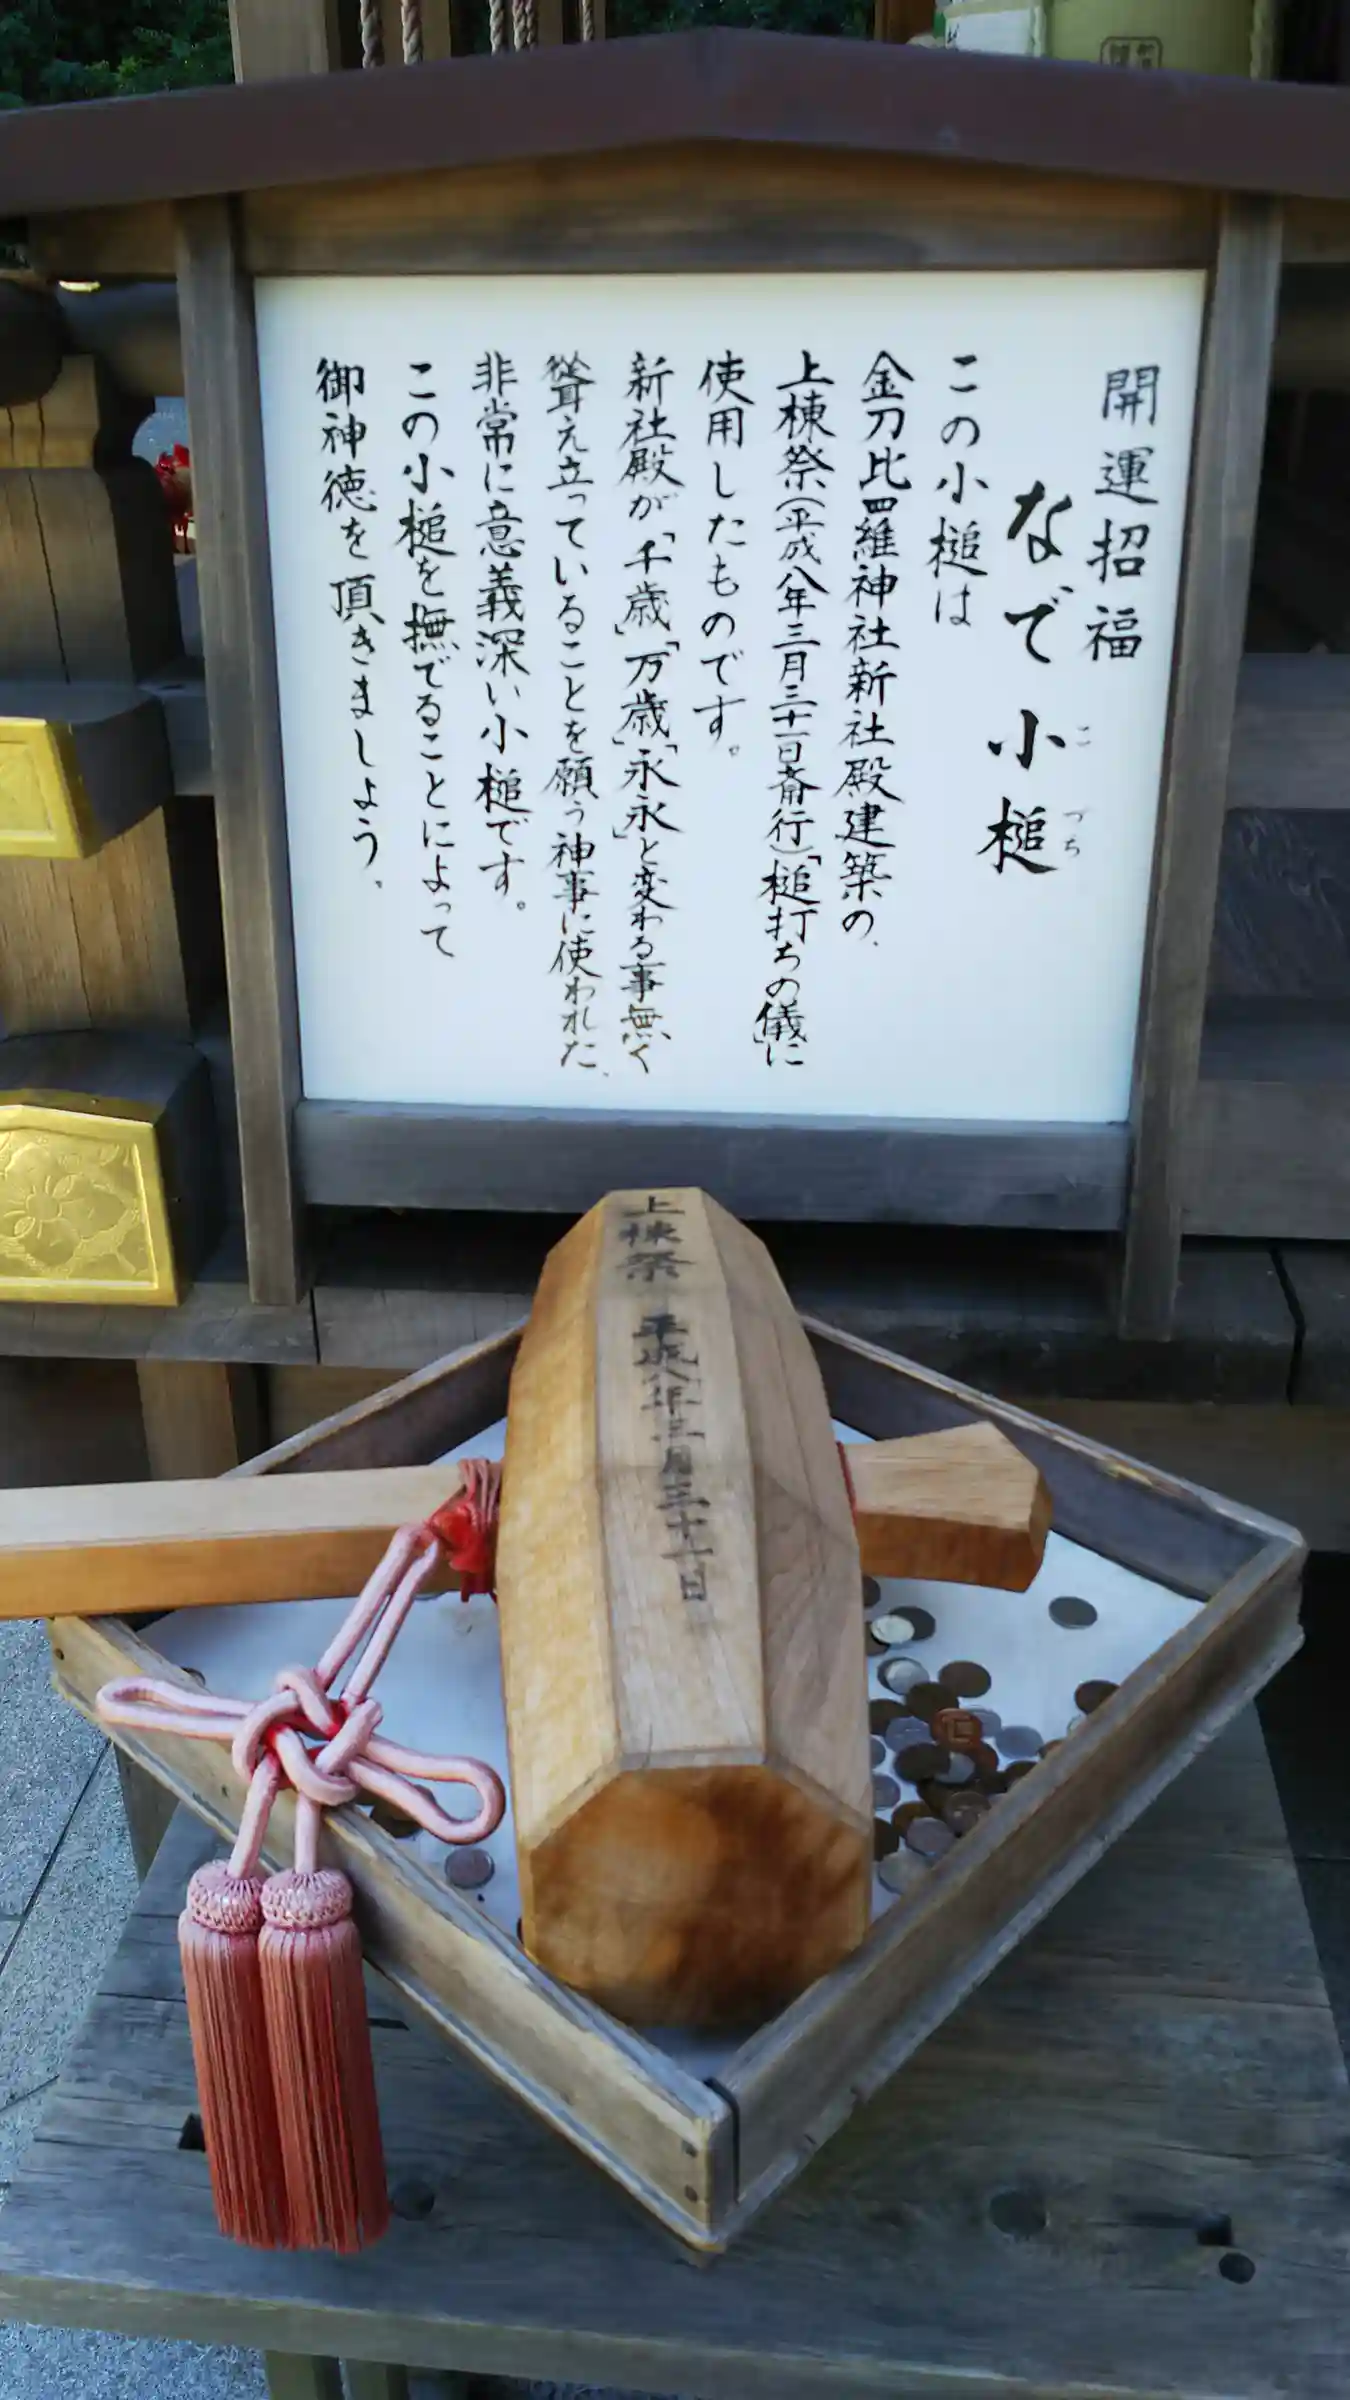 開運招福
なで小槌
こづち
この小槌は
金刀比四維神社新社殿建築の、
上棟祭(平成八年三月三十一日斎行)「槌打ちの儀」に
使用したものです。
新社殿が「千歳」「万歳」「永永」と変わる事無く
聳え立っていることを願う神事に使われた、
非常に意義深い小槌です。
この小槌を撫でることによって
御神徳を頂きましょう。
上棟祭 平成八年三月三十一日